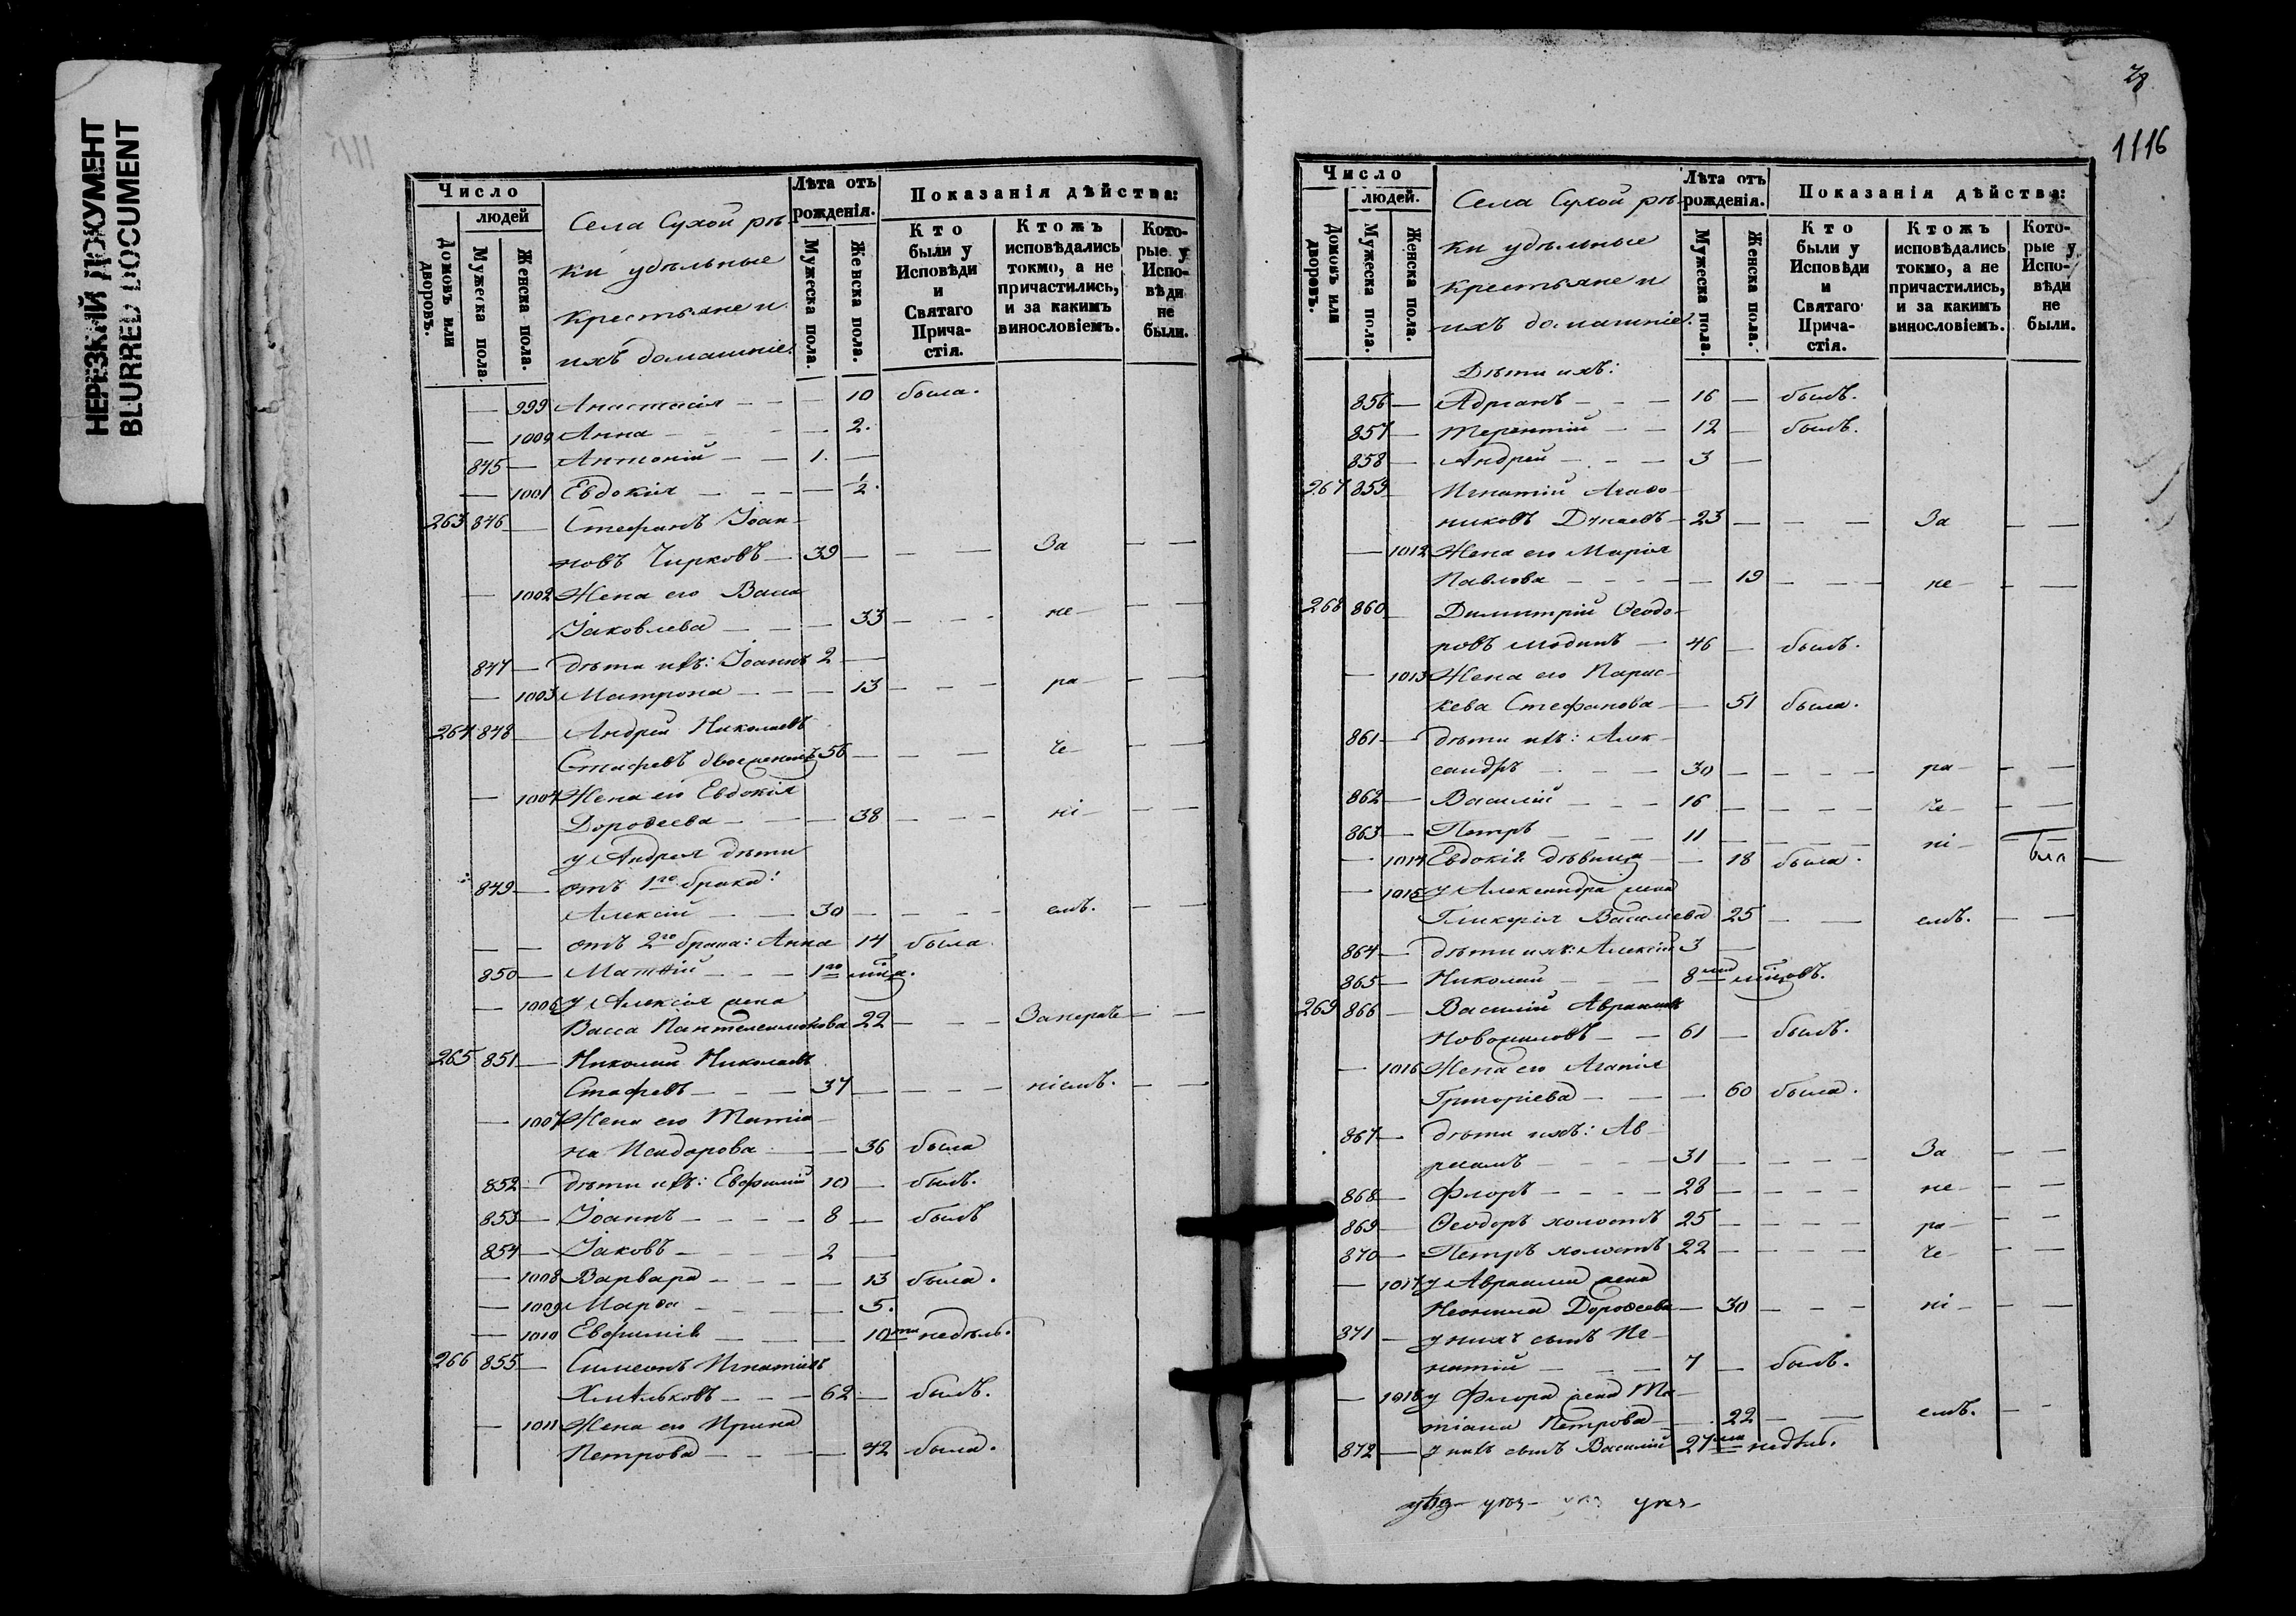 НЕРЕЗКИЙ ДОКУМЕНТ
BLURRED DOCUMENT
Число
людей
Домовъ или дворовъ.
Мужеска пола.
Женска пола.
Села Сухой рѣ-
ки удѣльные
крестьяне и
ихъ домашніе.
Лѣта отъ
рожденія.
Мужеска пола.
Женска пола.
Показанія дѣйства:
Кто
были у
Исповѣди
и
Святаго
Прича-
стія.
Ктожъ
исповѣдались
токмо, а не
причастились,
и за какимъ
винословіемъ.
Кото-
рые у
Испо-
вѣди
не
были.
— 999 Анастасія — — — 10 была.
— 1000 Анна — — — 2.
845 — Антоній — — 1. —
— 1001 Евдокія — — — ½.
263 846 — Стефанъ Іоан-
новъ Чирковъ — 39 — — — За — —
— 1002 Жена его Васса
Іаковлева — — — 33 — — не — —
847 — дѣти ихъ: Іоаннъ 2 —
— 1003 Матрона — — — 13 — — ра — —
264 848 — Андрей Николаевъ
56 — — — че — —
— 1004 Жена его Евдокія
Дороѳеева — — — 38 — — ні — —
у Андрея дѣти
849 — отъ 1го брака:
Алексій — — 30 — — — емъ. — —
— — отъ 2го брака: Анна 14 была
850 — Матѳій — — — 1го мца.
— 1006 у Алексія жена
Васса Пантелеимонова 22 — — Занераче — —
265 851 — Николай Николаевъ
Стафевъ — — — 37 — — — ніемъ. — —
— 1007 Жена его Татіа-
на Исидорова — — 36 была
852 — дѣти ихъ: Евфимій 10 — былъ.
853 — Іоаннъ — — — 8 — былъ
854 — Іаковъ — — — 2 —
— 1008 Варвара — — — 13 была.
— 1009 Марѳа — — — 5.
— 1010 Евфимія — — — 10ти недѣль.
266 855 — Симеонъ Игнатіевъ
Хмѣльковъ — — — 62 — былъ.
— 1011 Жена его Ирина
Петрова — — — 42 была.
28
1116
Число
людей.
Домовъ или дворовъ.
Мужеска пола.
Женска пола.
Села Сухой рѣ-
ки удѣльные
крестьяне и
ихъ домашніе.
Лѣта отъ
рожденія.
Мужеска пола.
Женска пола.
Показанія дѣйства:
Кто
были у
Исповѣди
и
Святаго
Прича-
стія.
Ктожъ
исповѣдались
токмо, а не
причастились,
и за какимъ
винословіемъ.
Кото-
рые у
Испо-
вѣди
не
были.
Дѣти ихъ:
856 — Адріанъ — — — 16 — былъ.
857 — Терентій — — 12 — былъ.
858 — Андрей — — — 3 —
267 859 Игнатій Агаѳо-
никовъ — 23 — — — За — —
— 1012 Жена его Марія
Павлова — — — — 19 — — — не — —
268 860 — Димитрій Ѳеодо-
ровъ — 46 — былъ.
— 1013 Жена его Парас-
кева Стефанова — — 51 была.
861 — дѣти ихъ: Алек-
сандръ — — — 30 — — — ра — —
862 — Василій — — — 16 — — — че — —
863 — Петръ — — — 11 — — — ні — —
— 1014 Евдокія дѣвица — — 18 была.
— 1015 у Александра жена
Гликерія Васильева 25 — — емъ. — —
864 — дѣти ихъ: Алексій 3 —
865 — Николай — — — 8ми мцовъ.
269 866 — Василій Авраамовъ
— — 61 — былъ.
— 1016 Жена его Агапія
Григоріева — — — 60 была.
867 — дѣти ихъ: Ав-
раамъ — — — 31 — — — За — —
868 — Флоръ — — — 28 — — — не — —
869 — Ѳеодоръ холостъ 25 — — — ра — —
870 — Петръ холостъ 22 — — — че — —
— 1017 у Авраама жена
Неонила Дороѳеева — 30 — — — ні — —
871 — у нихъ сынъ Иг-
натій — — — 7 — былъ.
— 1018 у Флора жена Та-
тіана Петрова — 22 — — емъ. — —
872 — у нихъ сынъ Василій 27ми недѣль.